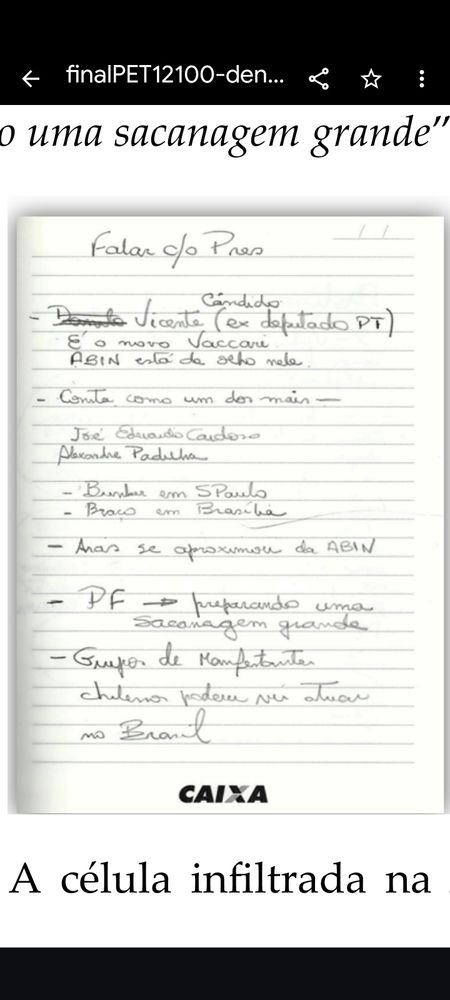 finalPET12100-den...
o uma sacanagem grande"
Falar c/o Pres
Cândido
- Vicente (ex deputado PT)
É o novo Vaccari.
ABIN está de olho nele.
- Conta como um dos mais —
José Eduardo Cardoso
Alexandre Padilha
- Bunker em SPaulo
- Braço em Brasília
- Anais se aproximou da ABIN
- PF → preparando uma
sacanagem grande
- Grupos de Manifestantes
chilenos podem vir atuar
no Brasil
CAIXA
A célula infiltrada na